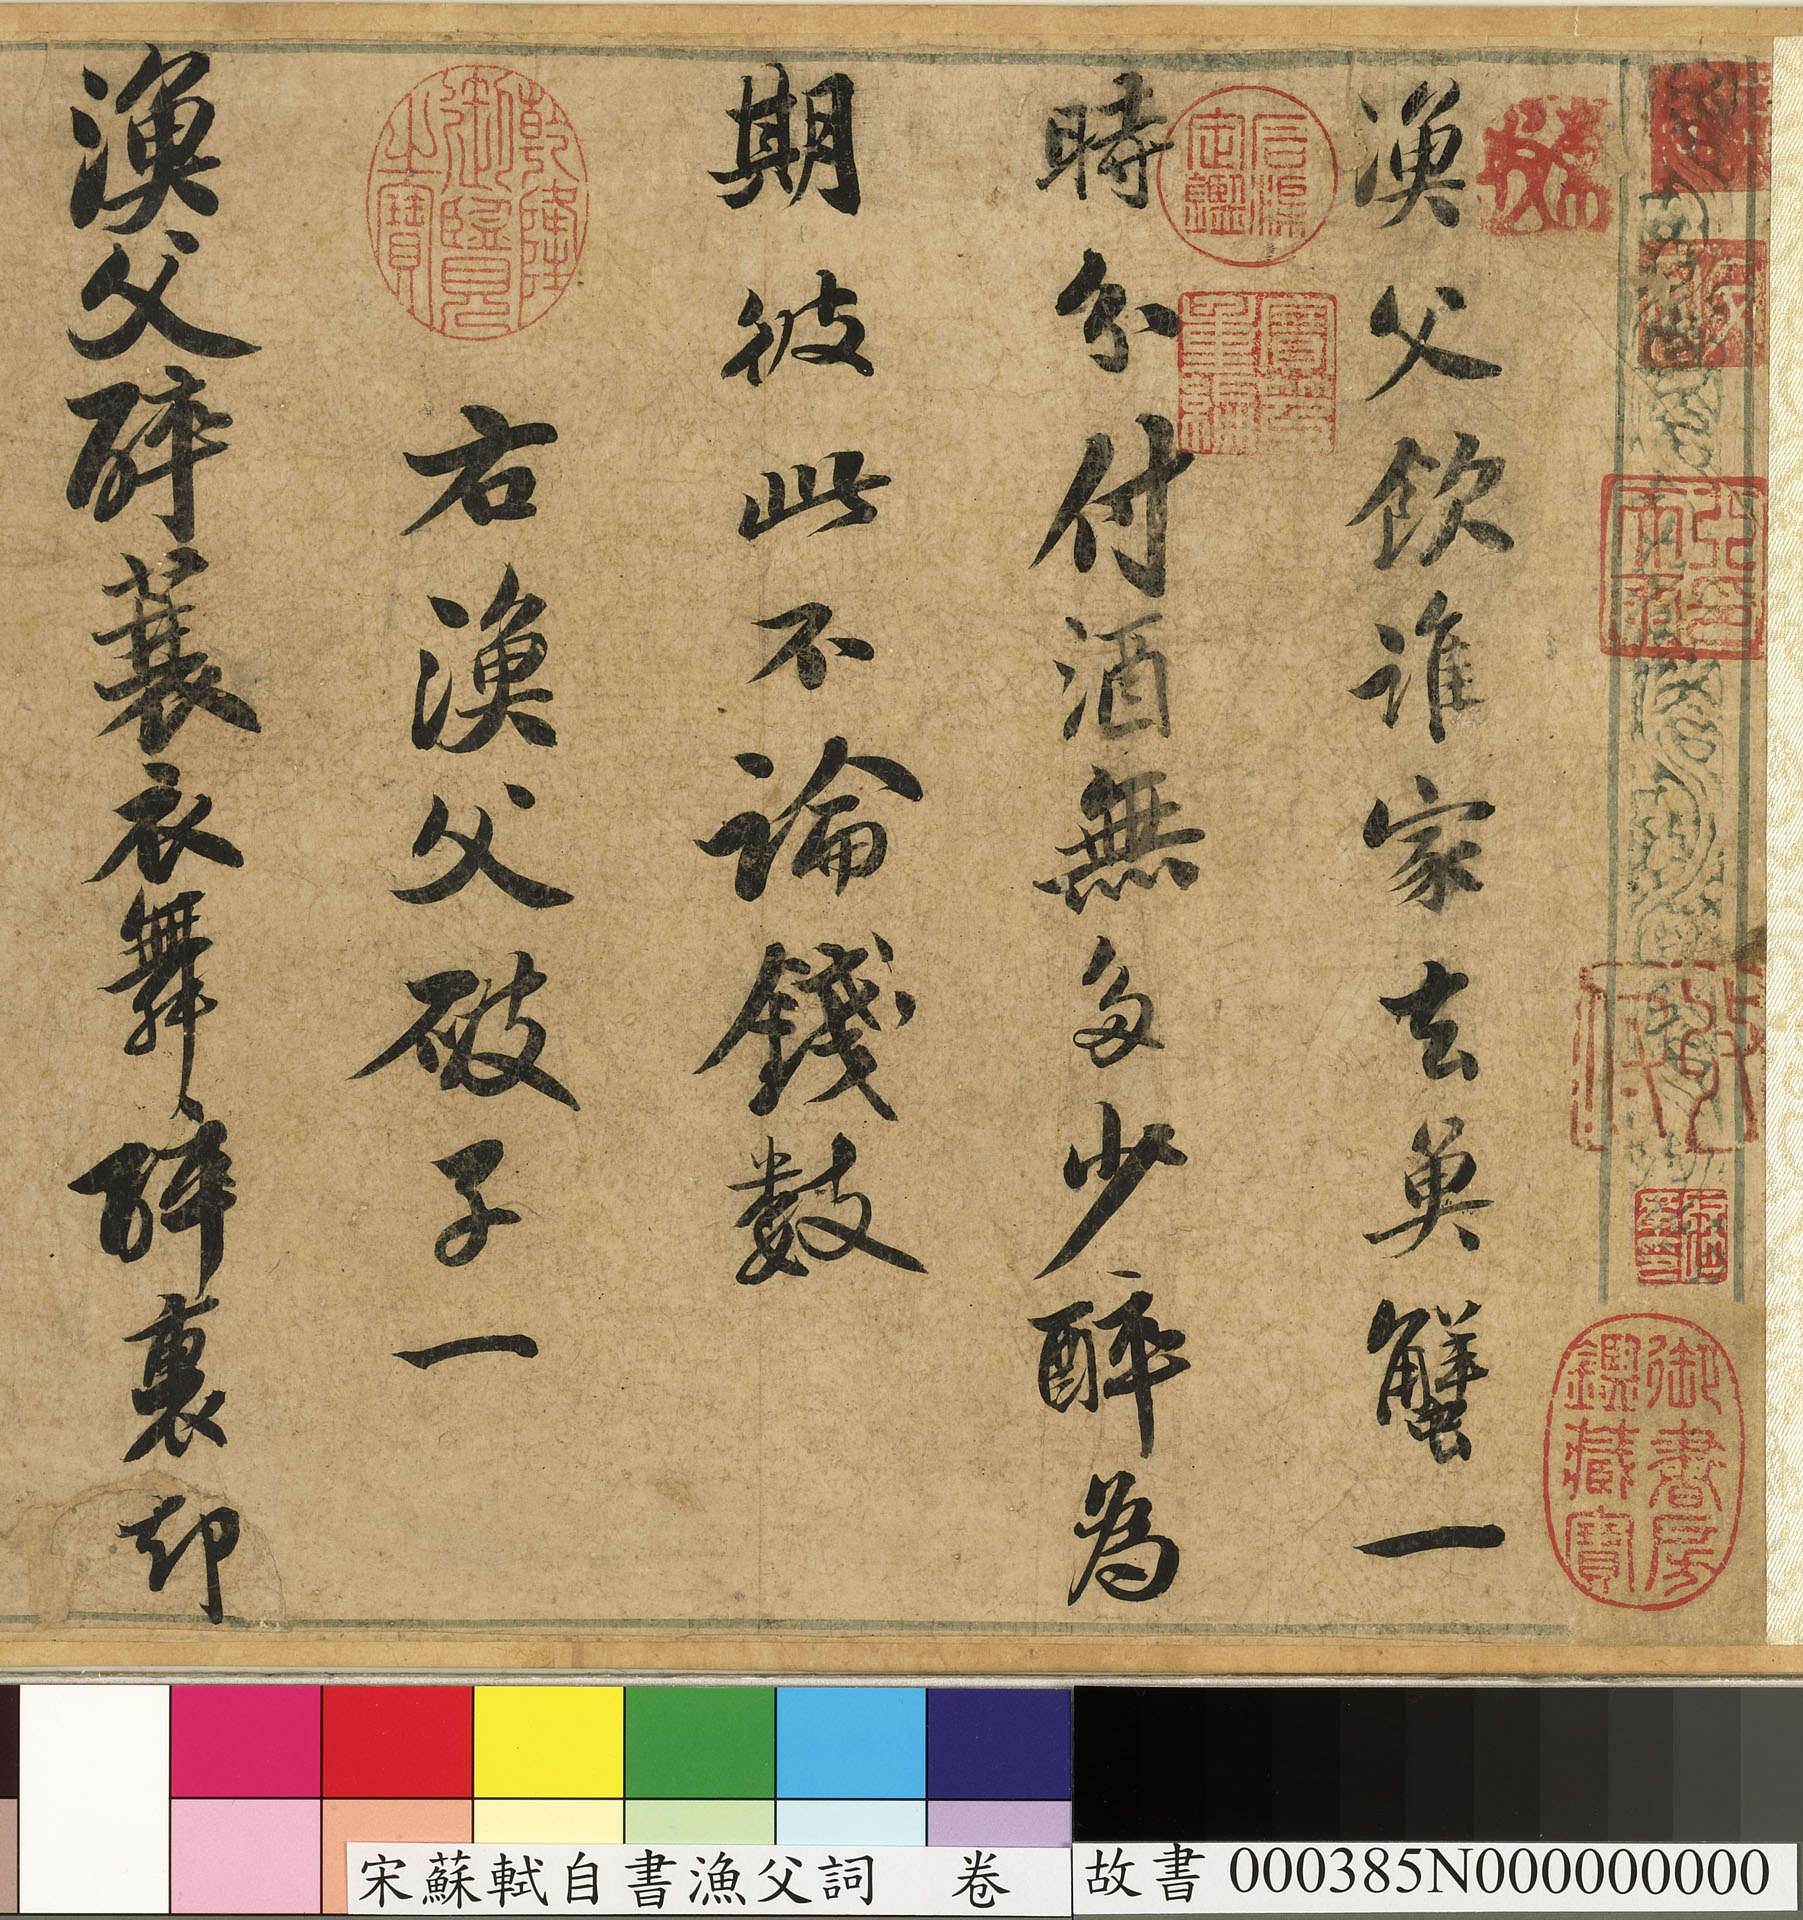 漁父飲誰家去魚蟹一
時分付酒無多少醉為
期彼此不論錢數
右漁父破子一
漁父醉蓑衣舞醉裏却
乾隆御覽之寶
石渠定鑑
寶笈重編
御書房鑑藏寶
宋蘇軾自書漁父詞 卷
故書 000385N000000000